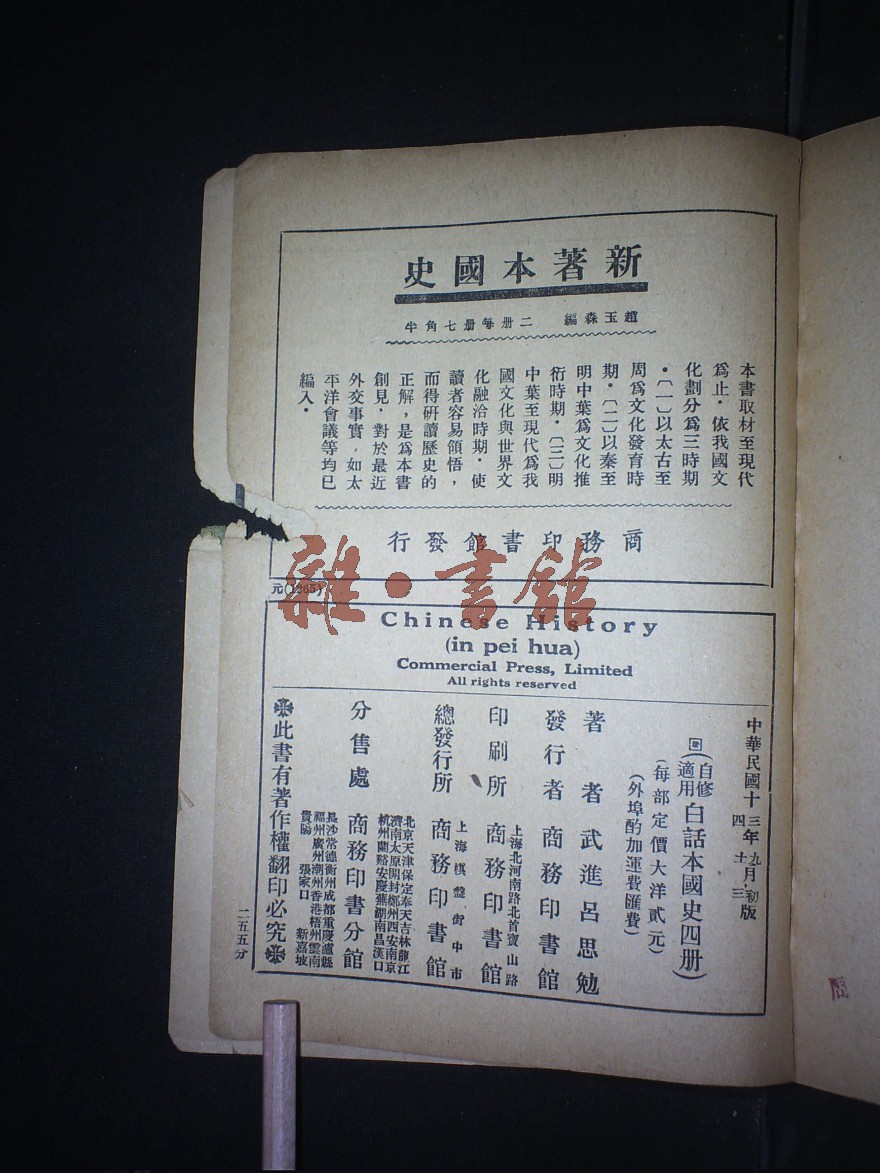 新著本國史
趙玉森編　二册每册七角半
本書取材至現代
爲止・依我國文
化劃分爲三時期
・(一)以太古至
周爲文化發育時
期・(二)以秦至
明中葉爲文化推
衍時期・(三)明
中葉至現代爲我
國文化與世界文
化融洽時期・使
讀者容易領悟，
而得研讀歷史的
正解，是爲本書
創見，對於最近
外交事實，如太
平洋會議等均已
編入・
商務印書館發行
雜・書館
元(1265)
Chinese History
(in pei hua)
Commercial Press, Limited
All rights reserved
中華民國十三年九月初版
四 十 三
(自修適用白話本國史四册)
(每部定價大洋貳元)
(外埠酌加運費匯費)
著者　武進呂思勉
發行者　商務印書館
上海北河南路北首寶山路
印刷所　商務印書館
上海棋盤街中市
總發行所　商務印書館
北京天津保定奉天吉林龍江
濟南太原開封鄭州西安南京
杭州蘭谿安慶蕪湖南昌漢口
分售處　商務印書分館
長沙常德衡州成都重慶瀘縣
福州廣州潮州香港梧州雲南
貴陽　張家口　新嘉坡
此書有著作權翻印必究
二五五分